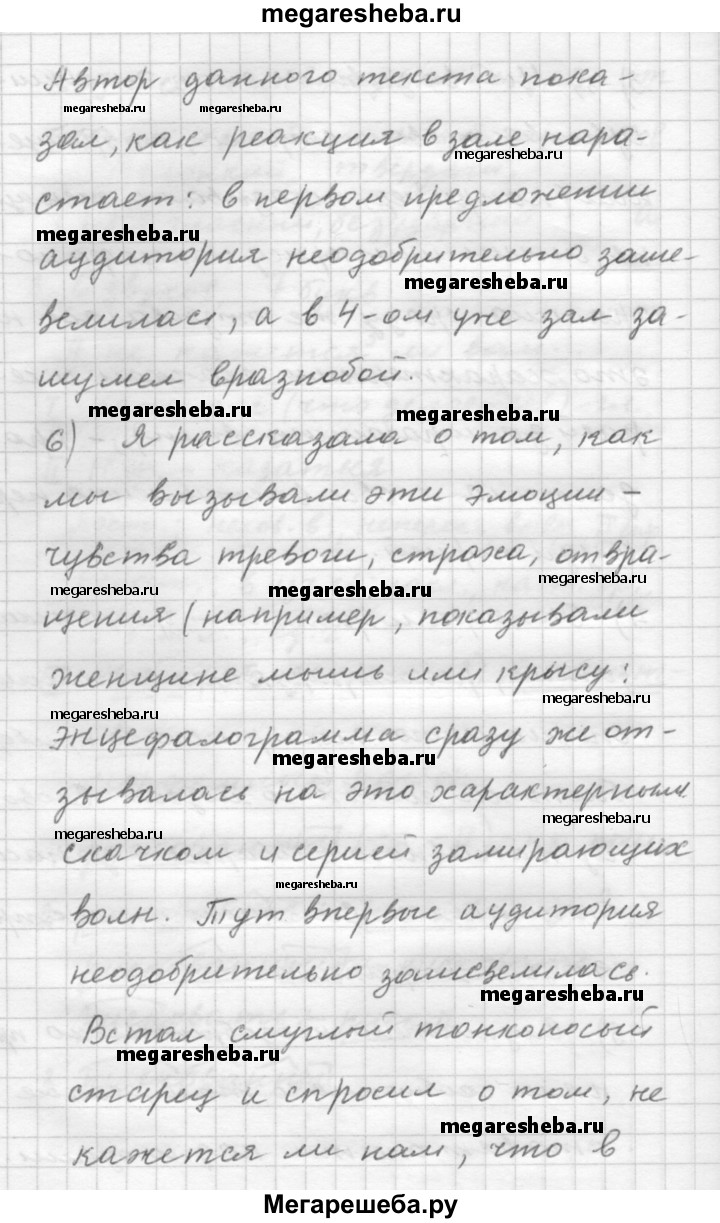 megaresheba.ru
Автор данного текста пока-
megaresheba.ru megaresheba.ru
зал, как реакция в зале нара-
megaresheba.ru
стает: в первом предложении
megaresheba.ru
аудитория неодобрительно заше-
megaresheba.ru
велилась, а в 4-ом уже зал за-
шумел вразнобой.
megaresheba.ru megaresheba.ru
6) - Я рассказала о том, как
мы вызывали эти эмоции -
чувства тревоги, страха, отвра-
megaresheba.ru megaresheba.ru megaresheba.ru
щения (например, показывали
женщине мышь или крысу:
megaresheba.ru megaresheba.ru
энцефалограмма сразу же от-
megaresheba.ru
зывалась на это характерным
megaresheba.ru megaresheba.ru
скачком и серией замирающих
megaresheba.ru
волн. Тут впервые аудитория
неодобрительно зашевелилась.
megaresheba.ru
Встал смуглый тонконосый
megaresheba.ru
старец и спросил о том, не
megaresheba.ru
кажется ли нам, что в
Мегарешеба.ру